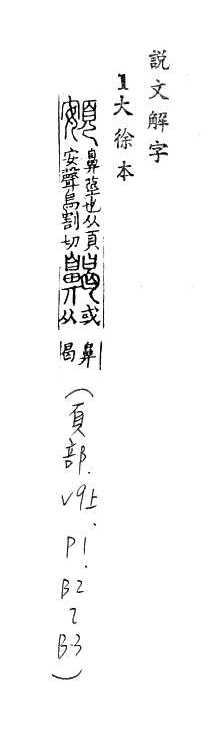 說文解字
1大徐本
頞鼻莖也从頁安聲烏割切齃或从鼻曷(頁部.V9上.P1.B2 2 B-3)